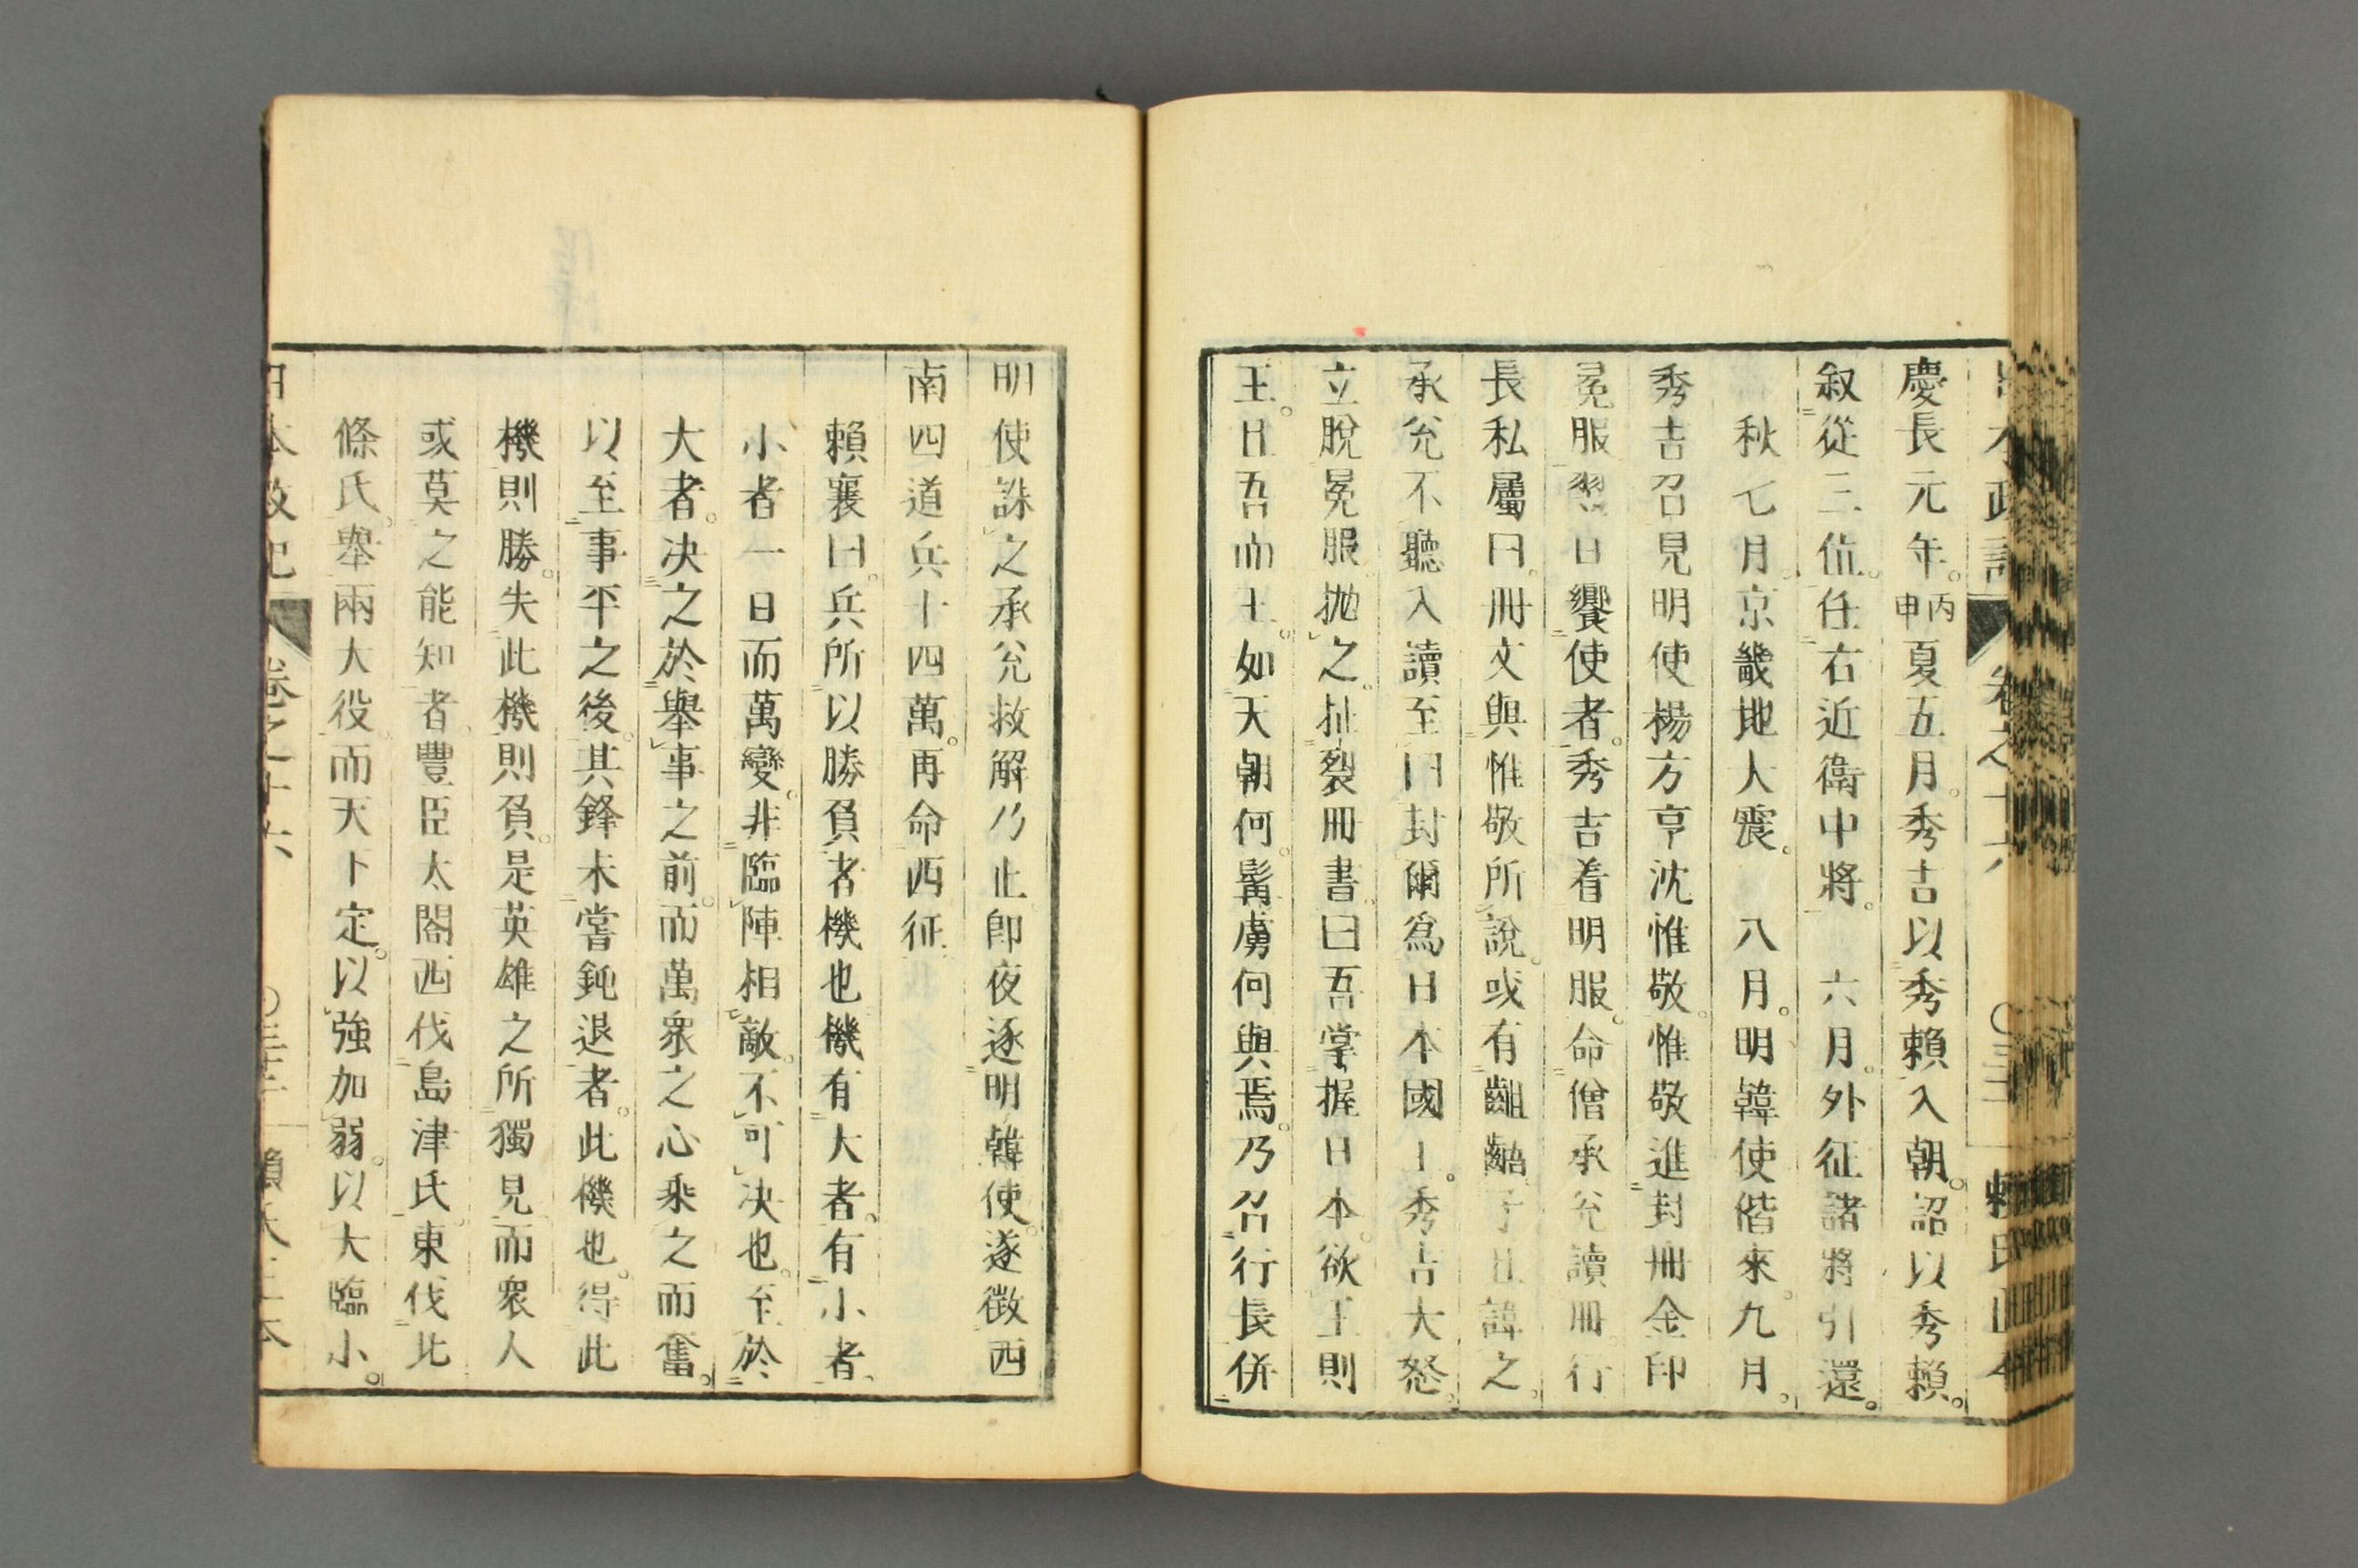 日本政記 卷之十六 〇三三 賴氏正本
慶長元年。丙申夏五月。秀吉以秀賴入朝。詔以秀賴。
叙從三位。任右近衛中將。六月。外征諸將引還。
秋七月。京畿地大震。八月。明韓使偕來。九月。
秀吉召見明使楊方亨沈惟敬。惟敬進封冊金印
冕服。翌日饗使者。秀吉着明服。命僧承兊讀冊。行
長私屬曰。冊文與惟敬所說。或有齟齬。子且諱之。
承兊不聽。入讀至曰封爾爲日本國王。秀吉大怒。
立脫冕服抛之。扯裂冊書。曰吾掌握日本。欲王則
王。且吾而王。如天朝何。髯虜何與焉。乃召行長。併
明使誅之。承兊救解乃止。卽夜逐明韓使。遂徵西
南四道兵十四萬。再命西征
賴襄曰。兵所以勝負者機也。機有大者。有小者。
小者一日而萬變。非臨陣相敵。不可決也。至於
大者。決之於舉事之前。而萬衆之心乘之而奮。
以至事平之後。其鋒未嘗鈍退者。此機也。得此
機則勝。失此機則負。是英雄之所獨見。而衆人
或莫之能知者。豐臣太閤西伐島津氏。東伐北
條氏。舉兩大役。而天下定。以強加弱。以大臨小。
日本政記 卷之十六